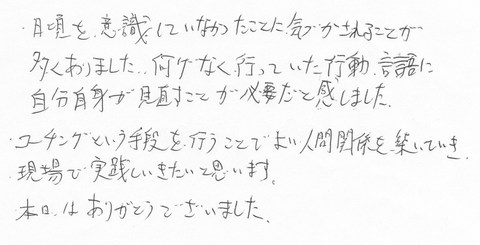 ・日頃を、意識していなかったことに気づかされることが
多くありました.. 何げなく行っていた行動、言語に
自分自身が見直すことが必要だと感しました.
・コーチングという手段を行うことでよい人間関係を築いていき.
現場で実践しいきたいと思います。
本日はありがとうございました.